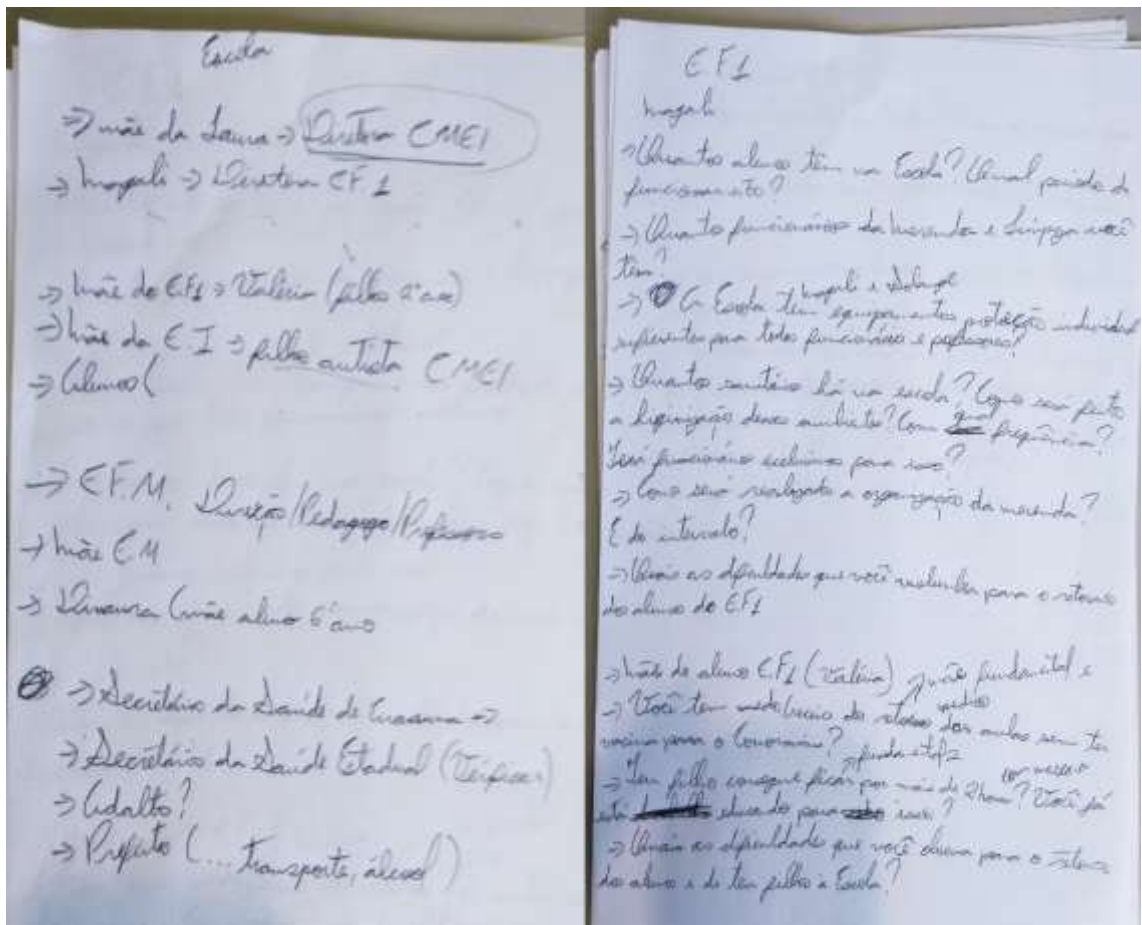 Escola
→ mãe da Laura → Diretora CMEI
→ Magali → Diretora EF1
→ mãe do EF1 → Valéria (filho 2º ano)
→ mãe da E I → filho autista CMEI
→ Alunos (
→ E.F.M. Direção/Pedagogo/Professores
→ mãe EM
→ (mãe aluno 6º ano
→ Secretário da Saúde de →
→ Secretário da Saúde Estadual (Verificar)
→ Adalto?
→ Prefeito (... transporte, álcool)
E.F1
Magali
→ Quantos alunos têm na Escola? Qual período de
funcionamento?
→ Quantos funcionários da merenda e limpeza você
tem?
Magali e
→ A Escola tem equipamentos proteção individual
suficientes para todos funcionários e professores?
→ Quantos sanitários há na escola? Como será feito
a higienização desses ambientes? Com que frequência?
Terá funcionário exclusivo para isso?
→ Como será realizado a organização da merenda?
E do intervalo?
→ Quais as dificuldades que você para o retorno
dos alunos do EF1
→ Mãe de aluno EF1 (Valéria) mãe fundamental e
médio
→ Você tem medo/receio do retorno das aulas sem ter
vacina para o Coronavírus?
fundamental 2
→ Seu filho consegue ficar por mais de 2 horas? Você já
com máscara
está educando para isso?
→ Quais as dificuldades que você observa para o retorno
dos alunos e do teu filho à Escola?